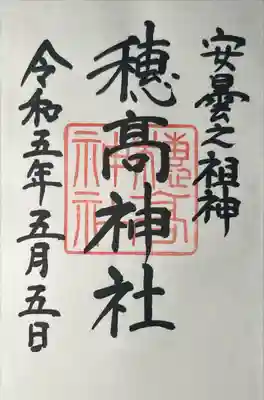 安曇之祖神
穂高神社
令和五年五月五日
穂高神社